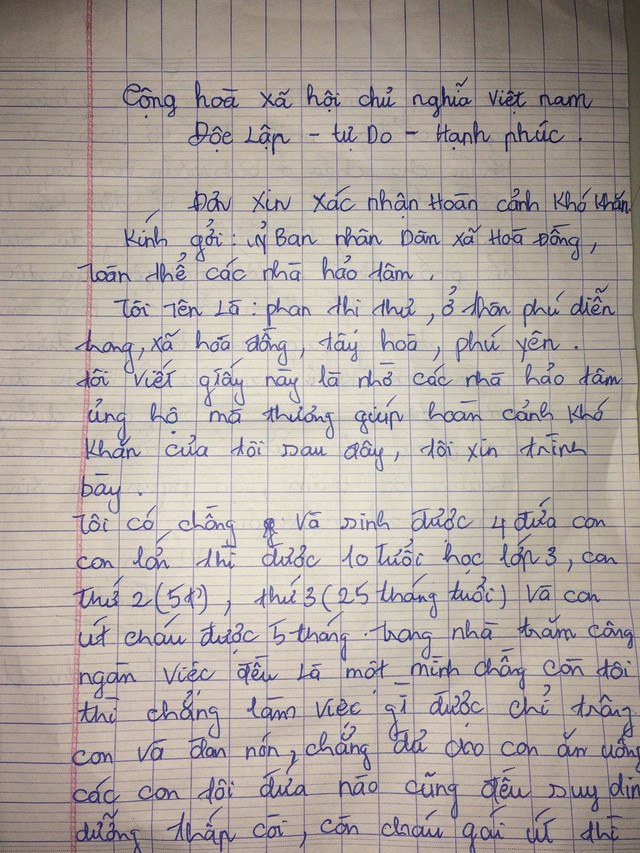 Cộng hoà xã hội chủ nghĩa Việt nam
Độc Lập - tự Do - Hạnh phúc.
Đơn xin xác nhận Hoàn cảnh khó khăn
Kính gởi: Uỷ Ban nhân Dân xã Hoà Đồng,
Toàn thể các nhà hảo tâm.
Tôi Tên Là: phan thi thư, ở thôn phú diễn
trong, xã hoà đồng, tây hoà, phú yên.
tôi viết giấy này là nhờ các nhà hảo tâm
ủng hộ mà thương giúp hoàn cảnh khó
khăn của tôi sau đây, tôi xin trình
bày.
Tôi có chồng và sinh được 4 đứa con
con lớn thì được 10 tuổi học lớp 3, con
thứ 2 (5t), thứ 3 (25 tháng tuổi) và con
út cháu được 5 tháng. trong nhà trăm công
ngàn việc đều là một mình chồng còn tôi
thì chẳng làm việc gì được chỉ trông
con và đan nón, chẳng đủ cho con ăn uống
các con tôi đứa nào cũng đều suy din
dưỡng thấp còi, còn cháu gái út thì